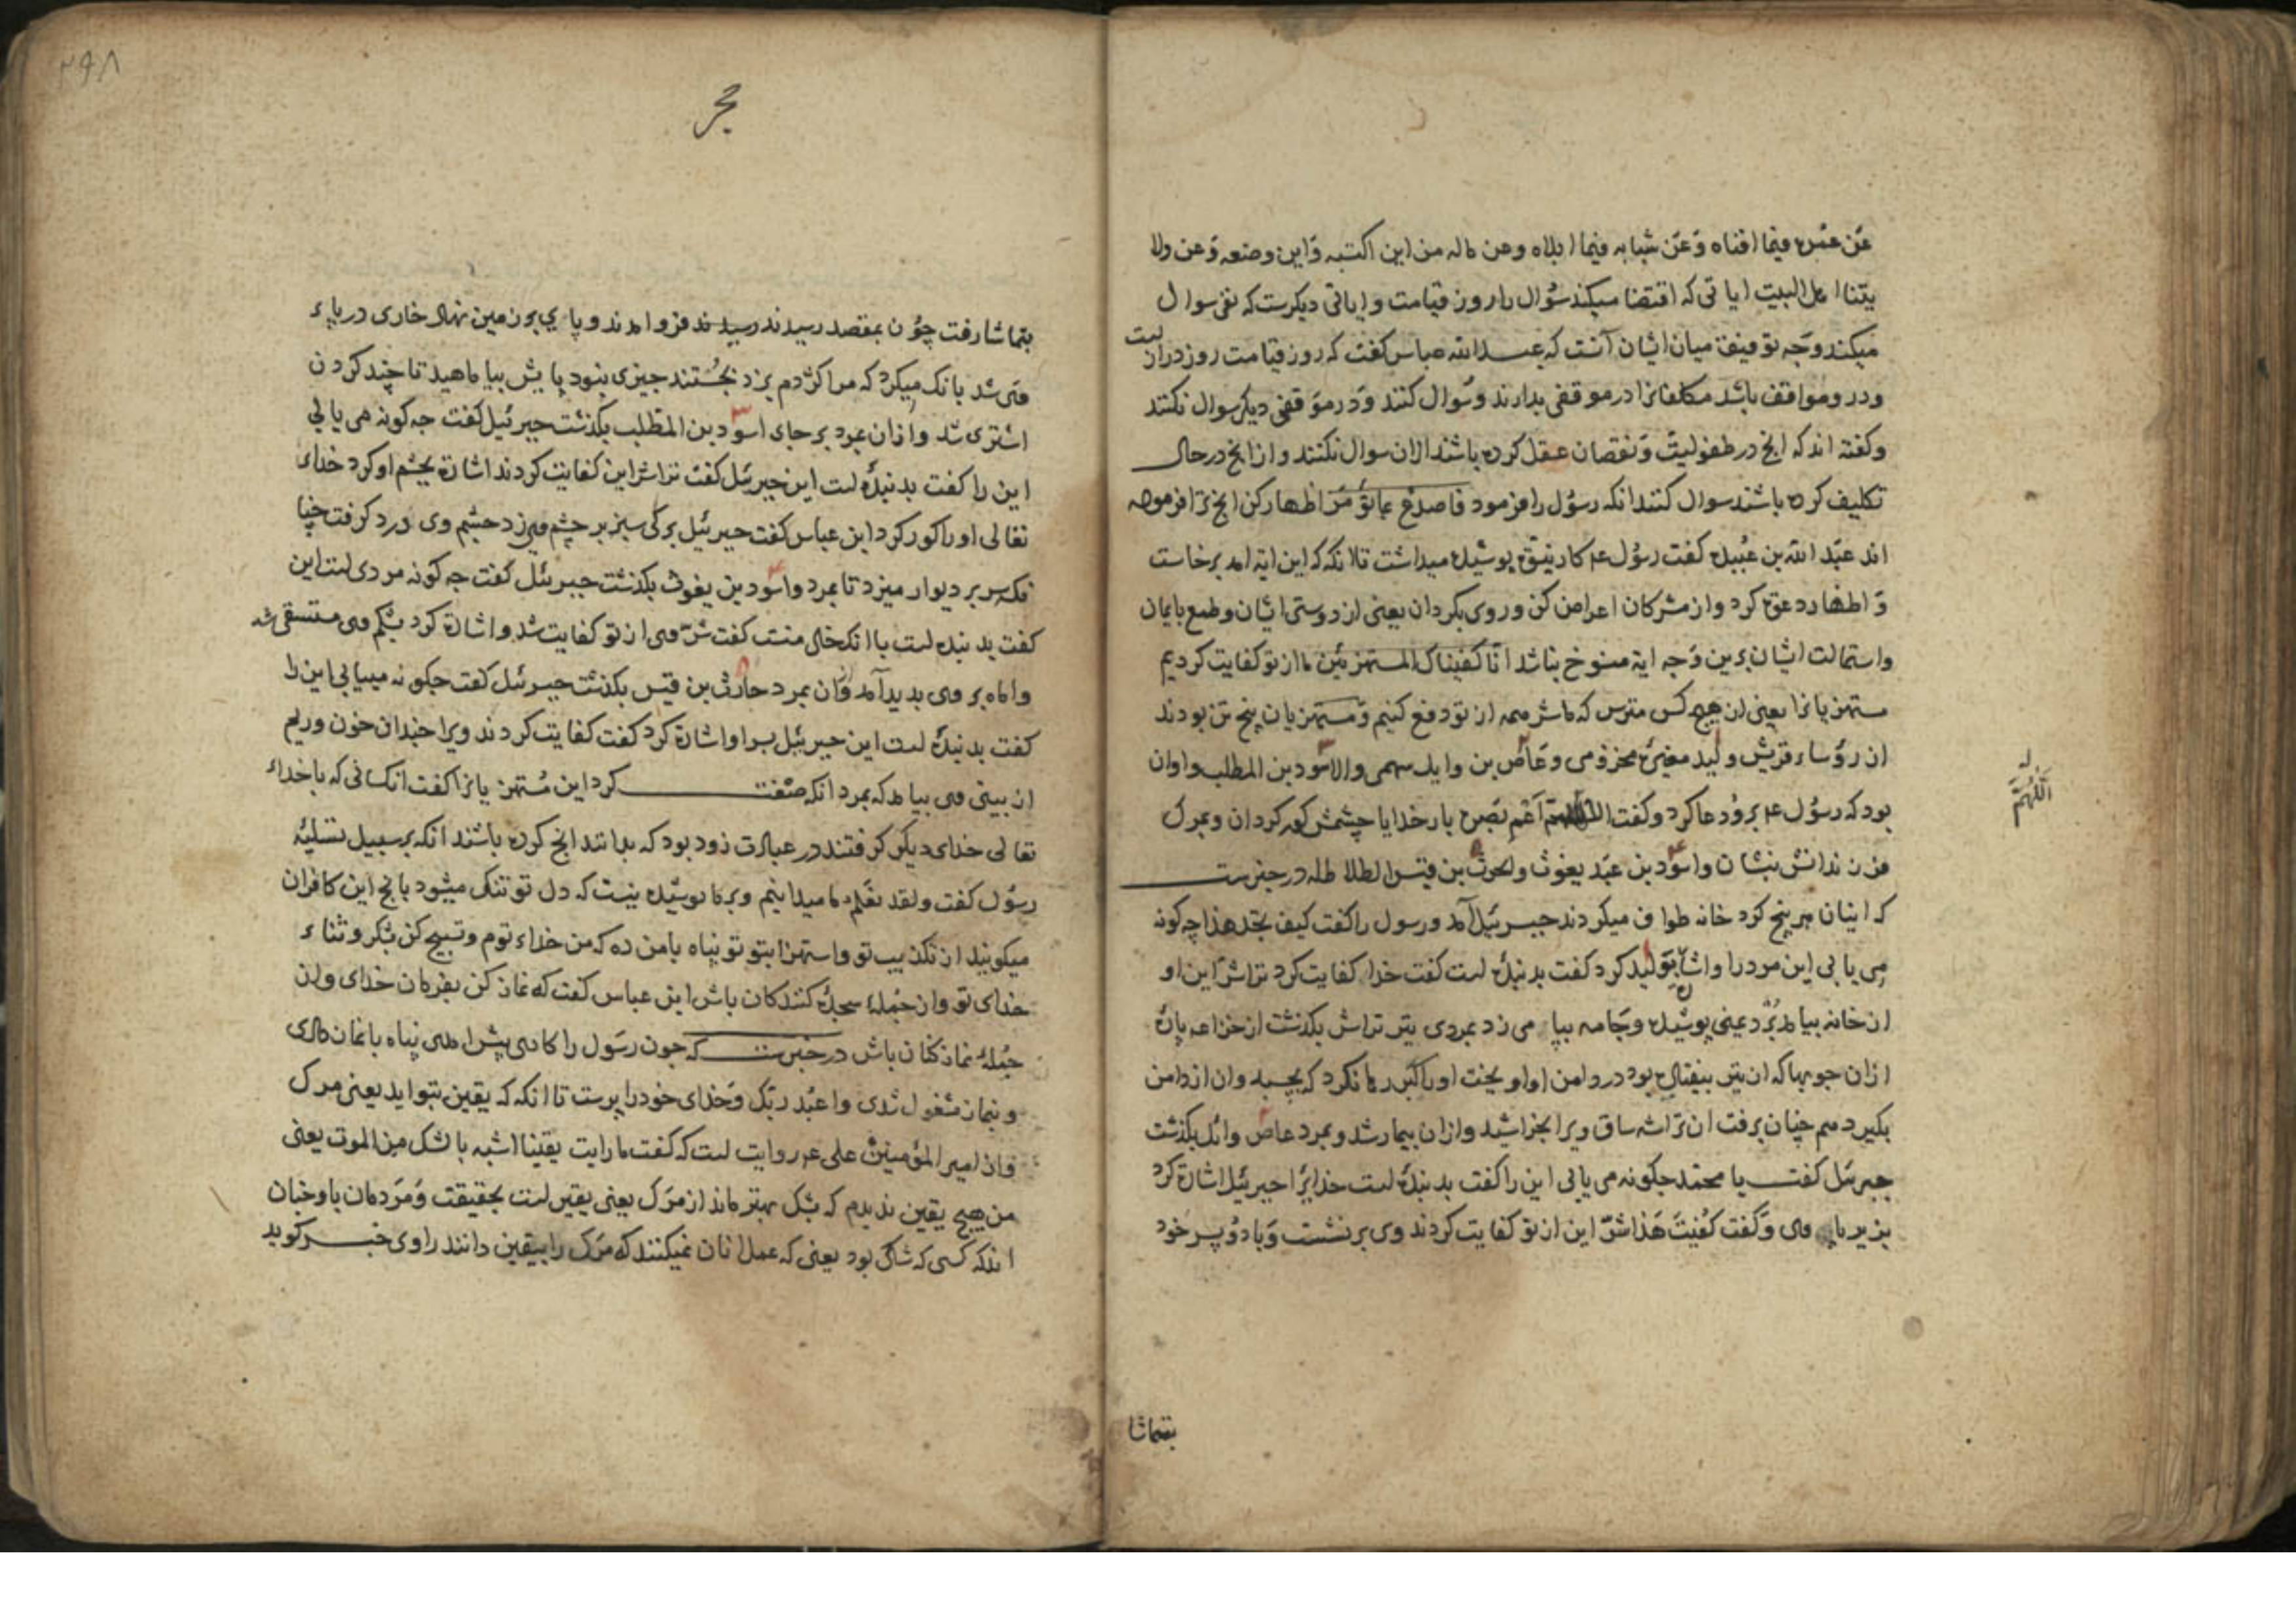 عَن عمُره فیما افناه وَعَن شبابه فیما ابلاه وعن ماله من این اکتسبه وَاین وضعه وَعن ولا
یتنا اهل البیت ایاتی که اقتضا میکند سُوال را روز قیامت وایاتی دیکرست که نفی سوال
میکند وَجه توفیق میان ایشان آنست که عبدالله عباس کفت که روز قیامت روز درازست
ودرو مواقف باشد مکلفانرا در موقفی بدارند وسُوال کنند وَدر موَقفی دیکر سوال نکنند
وکفته اند که انچ در طفولیتَ وَنقصان عقل کرده باشند ازان سوال نکنند وازانچ در حال
تکلیف کرده باشند سوال کنند انکه رسُول را فرمود فاصدع بما تؤمَر اظهار کن انچ ترا فرموده
اند عبَد الله بن عُبیده کفت رسُول ع کار دینی پوشیده میداشت تا انکه که این ایة امد برخاست
وَ اظهار دعوَة کرد واز مشرکان اعراض کن وروی بکردان یعنی از دوستی ایشان وطمع بایمان
واستمالت ایشان برین وَجه ایة منسوخ نباشد انّا کفیناک المستهزئین ما از تو کفایت کردیم
مستهزیانرا یعنی از هیچ کس مترس که ما شر همه از تو دفع کنیم وَمستهزیان پنج تن بودند
از رؤساء قریش ولید مغیرَة مخزومی وعَاص بن وایل سهمی والاسَود بن المطلب واو ان
بود که رسُول ع برو دعا کرد وکفت اَعْمِ بَصَرَه بار خدایا چشمش کور کردان وبمرک
فرزندانش بنشان واسَود بن عبَد یغوث والحرث بن قیس الطلاطله در خبرست
که اینان هر پنج کرد خانه طواف میکردند جبرئیل آمد ورسول را کفت کیف تجد هذا چه کونه
می یابی این مرد را واشارَة بوَلید کرد کفت بد بنده است کفت خدا کفایت کرد تراشرَ این او
از خانه بیامد بُرُد یمنی پوشیده وجَامه بپا می زد بمردی تیر تراش بکذشت از خزاعه پارۀ
ازان چوبها که ازتیر بیفتاده بود در دامن او اویخت اورا کبَر رها نکرد که بجسبد وان از دامن
بکیرد همچنان برفت ان تراشه ساق ویرا بخراشید وازان بیمار شد وبمرد عاص وائل بکذشت
جبرئیل کفت یا محمَد چکونه می یابی این را کفت بد بندۀ است خدایرا جبرئیل اشارَة کرد
بزیر پای وی وَکفت کُفیتَ هَذا شرّ این از تو کفایت کردند وی برنشست وَبا دوُ پسر خود
بتماشا
اَللّٰهُمَّ
۲۹۸
حجر
بتماشا رفت چوُن بمقصد رسیدند فرو امدند وپای بر زمین نهاد خاری در پاء
وی شد بانک میکرد که مرا کژدم بزد بجُستند چیزی نبود پایش بیاماهید تا چند کردن
اشتری شد وازان بمرد بر جای اسوَد بن المطلب بکذشت جبرئیل کفت چه کونه می یابی
این را کفت بد بندَۀ است این جبرئیل کفت تراشراین کفایت کردند اشارَة بچشم او کرد خدای
تعالی اورا کور کرد ابن عباس کفت جبرئیل برکی سبز بر چشم وی زد چشم وی درد کرفت چنا
نک سر بر دیوار میزد تا بمرد واسَود بن یغوث بکذشت جبرئیل کفت چه کونه مردی است این
کفت بد بنده است با انک خال منست کفت شرّ وی از تو کفایت شد واشارَة کرد بشکم وی مستسقی شد
واماه بر وی بدید آمد وَزان بمرد حارث بن قیس بکذشت جبرئیل کفت چکونه مییابی این را
کفت بد بندۀ است این جبرئیل بسر او اشارَة کرد کفت کفایت کردند ویرا چندان خون وریم
از بینی وی بیامد که بمرد انکه صفت کرد این مُستهزیانرا کفت انکسانی که باخداء
تعالی خدای دیکر کرفتند در عبادت زود بود که بدانند انچ کرده باشند انکه بر سبیل تسلیَۀ
رسوُل کفت ولقد نعَلم ما میدانیم وبرما پوشیده نیست که دل تو تنک میشود بانچ این کافران
میکویند از تکذیب تو واستهزا بتو تو پناه بامن ده که من خداء توم وتسبیح کن بشکر وثناء
خدای تو واز جُملۀ سجدَه کنندکان باش ابن عباس کفت که نماز کن بفرمان خدای واز
جُملۀ نماز کنان باش در خبرست که چون رسَول را کاری پیش امدی پناه بانماز دادی
وبنماز مشغول شدی واعبُد ربّک وَخدای خود را پرست تا انکه که یقین بتو اید یعنی مرک
وَاز امیر المؤمنین علی ع روایت است که کفت ما رایت یقینا اشبه بالشک مِن الموت یعنی
من هیچ یقین ندیدم که بشک بهتر ماند از مرَک یعنی یقین است بحقیقت وَمرَدمان باو چنان
اند که کسی که شاک بود یعنی که عمل انان نمیکنند که مرَک را بیقین دانند راوی خبر کوید